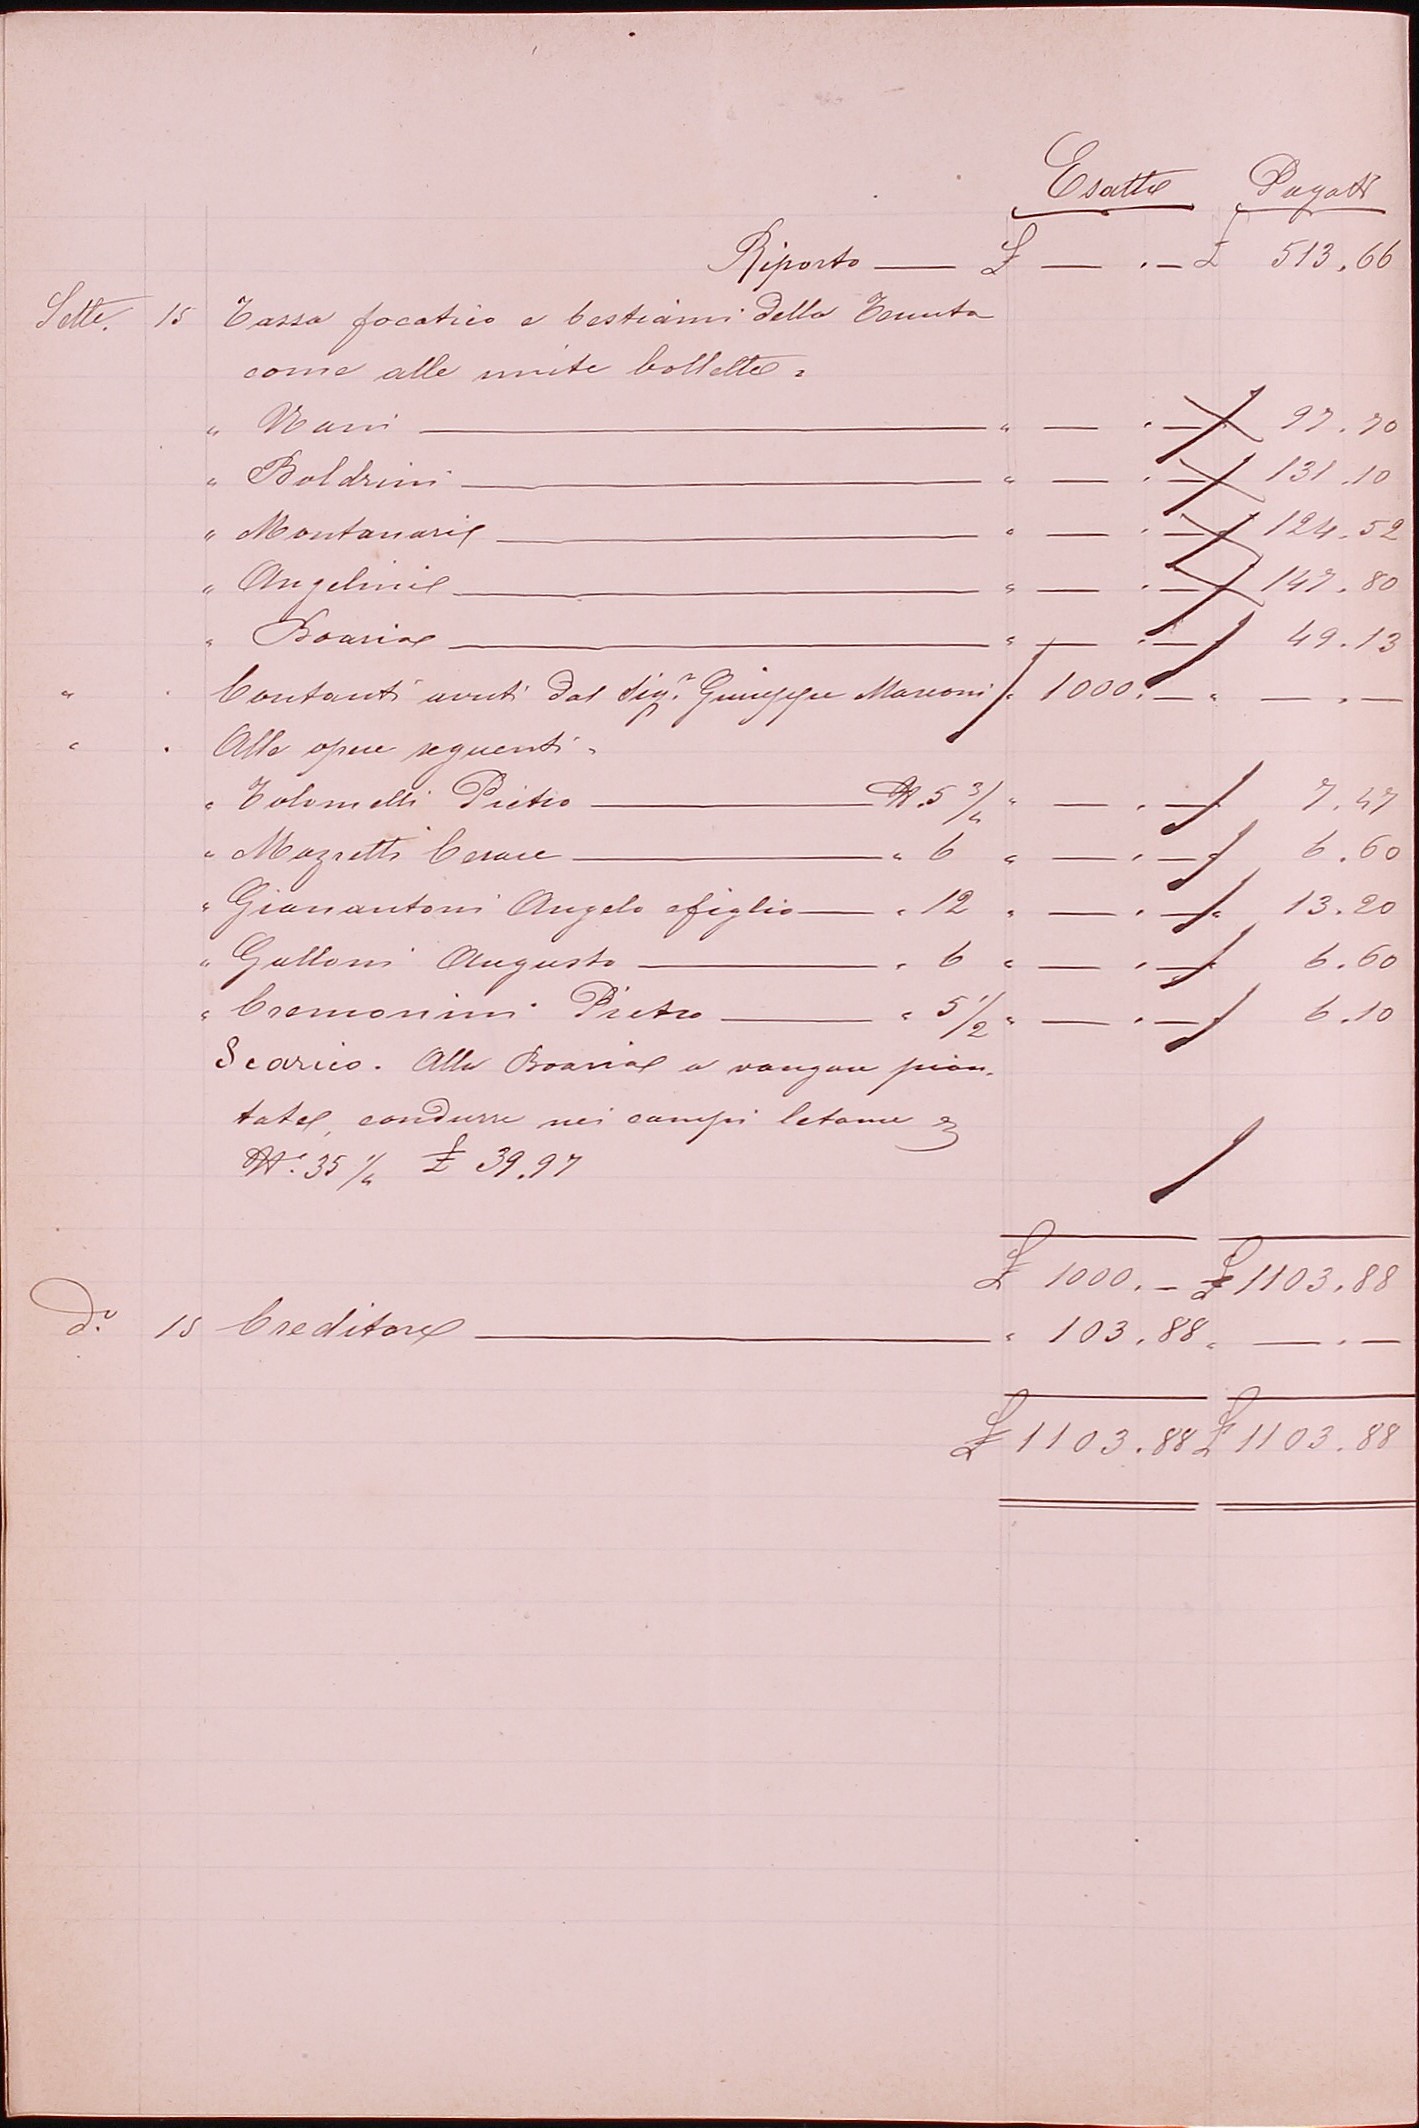 Esatte Pagate
Riporto — £ — . — £ 513.66
Sette. 15 Tassa focatico e bestiami della Tenuta
come alle unite bollette =
" Nani — " — . — " 97.70
" Boldrini — " — . — " 131.10
" Montanari — " — . — " 124.52
" Angelini — " — . — " 147.80
" Boaria — " — . — " 49.13
" . Contanti avuti dal Sig.r Giuseppe Marconi " 1000. — " — . —
" . Alle opere seguenti =
" Tolomelli Pietro — N. 5 3/4 " — . — " 7.47
" Mazzetti Cesare — " 6 " — . — " 6.60
" Gianantoni Angelo e figlio — " 12 " — . — " 13.20
" Galloni Augusto — " 6 " — . — " 6.60
" Cremonini Pietro — " 5 1/2 " — . — " 6.10
Scarico. Alla Boaria a vangare pian-
tate, condurre nei campi letame
N.° 35 1/4 £ 39.97
£ 1000. — £ 1103.88
D.o 15 Creditore — " 103.88 " — . —
£ 1103.88 £ 1103.88